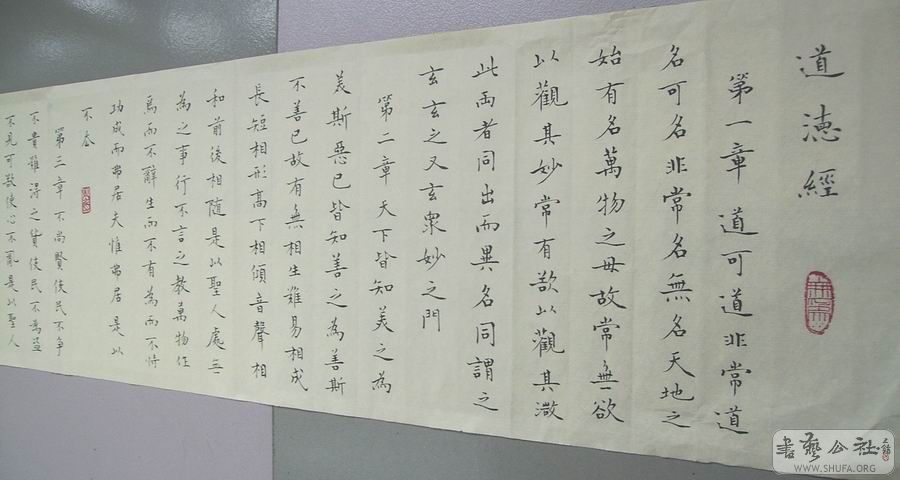 道德經
第一章 道可道非常道
名可名非常名無名天地之
始有名萬物之母故常無欲
以觀其妙常有欲以觀其徼
此兩者同出而異名同謂之
玄玄之又玄衆妙之門
第二章 天下皆知美之為
美斯惡已皆知善之為善斯
不善已故有無相生難易相成
長短相形高下相傾音聲相
和前後相隨是以聖人處無
為之事行不言之教萬物作
焉而不辭生而不有為而不恃
功成而弗居夫惟弗居是以
不去
第三章 不尚賢使民不爭
不貴難得之貨使民不為盜
不見可欲使心不亂是以聖人
書藝公社
WWW.SHUFA.ORG